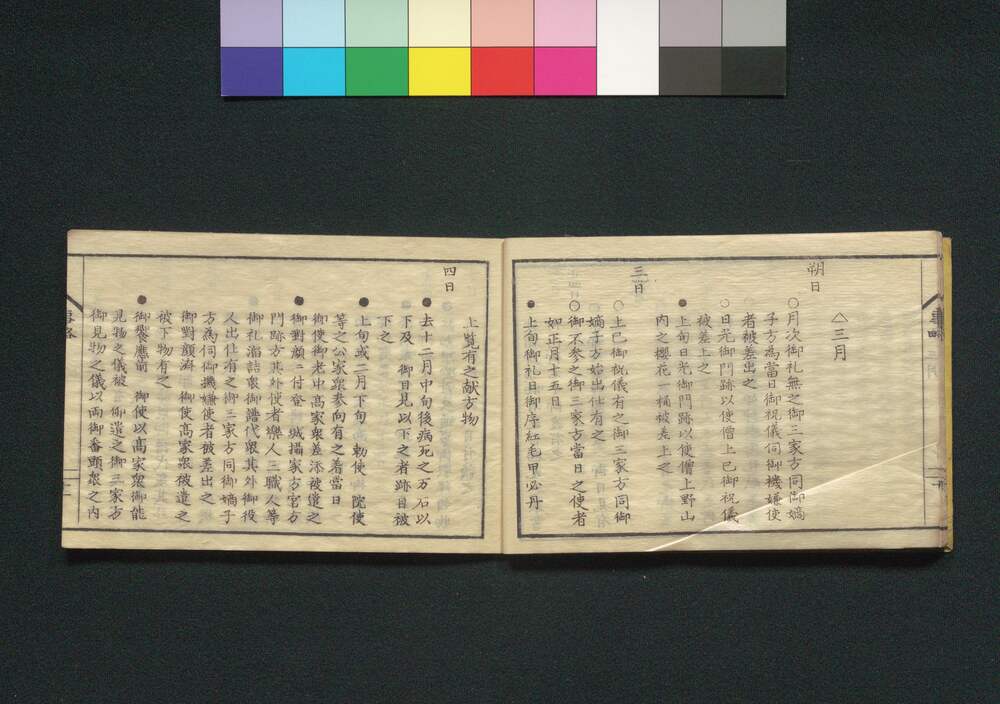 △三月
朔日
○月次御礼無之御三家方同御嫡
子方為當日御祝儀伺御機嫌使
者被差出之
○日光御門跡以使僧上巳御祝儀
被差上之
●上旬日光御門跡以使僧上野山
内之櫻花一桶被差上之
三日
○上巳御祝儀有之御三家方同御
嫡子方始出仕有之
○御不参之御三家方當日之使者
如正月十五日
●上旬御礼日御序紅毛甲必丹
上覧有之献方物
四日
●去十二月中旬後病死之万石以
下及 御目見以下之者跡目被
下之
●上旬或二月下旬 勅使 院使
等之公家衆参向有之着當日
御使御老中髙家衆差添被遣之
●御對顔ニ付登 城攝家方宮方
門跡方其外使者樂人三職人等
御礼溜詰衆御譜代衆其外御役
人出仕有之御三家方同御嫡子
方為伺御機嫌使者被差出之
御對顔済 御使髙家衆被遣之
被下物有之
●御饗應前 御使以髙家衆御能
見物之儀被 仰遣之御三家方
御見物之儀以両御番頭衆之内